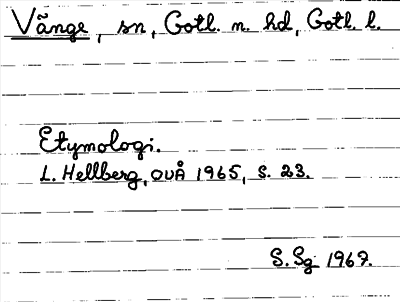 Vänge, sn, Gotl. n. hd, Gotl. l.
Etymologi.
L. Hellberg, OUÅ 1965, s. 23.
S. Sg. 1967.